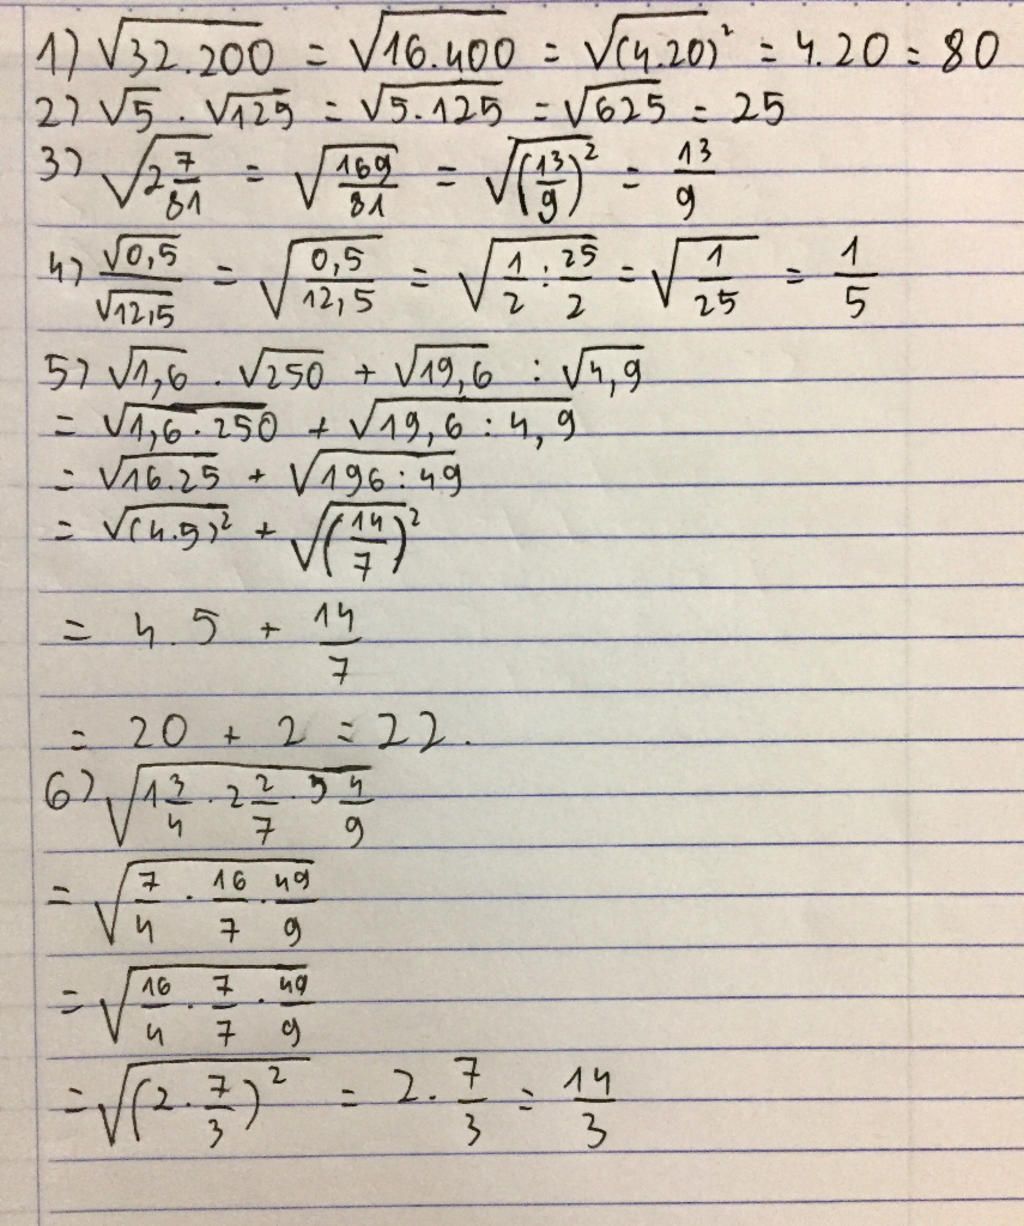 1) √32.200 = √16.400 = √(4.20)² = 4.20 = 80
2) √5 . √125 = √5.125 = √625 = 25
3) √(2 7/81) = √(169/81) = √(13/9)² = 13/9
4) √0,5/√12,5 = √(0,5/12,5) = √(1/2 : 25/2) = √(1/25) = 1/5
5) √1,6 . √250 + √19,6 : √4,9
= √1,6.250 + √19,6 : 4,9
= √16.25 + √196 : 49
= √(4.5)² + √(14/7)²
= 4.5 + 14/7
= 20 + 2 = 22.
6) √(1 3/4 . 2 2/7 . 5 4/9)
= √(7/4 . 16/7 . 49/9)
= √(16/4 . 7/7 . 49/9)
= √(2 . 7/3)² = 2 . 7/3 = 14/3